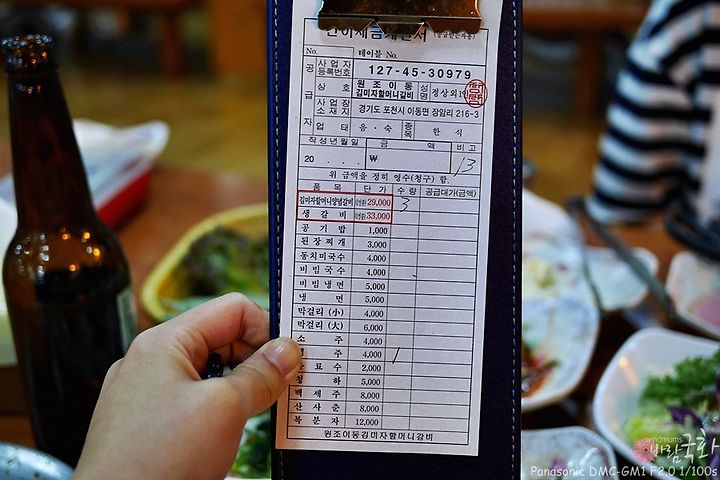 간이세금계산서 (공급받는자용)
No. 테이블 No.
공급자
사업자등록번호 127-45-30979
상호 원조이동 김미자할머니갈비 성명 정상외1인
사업장소재지 경기도 포천시 이동면 장암리 216-3
업태 음·숙 종목 한식
작성년월일 금액 비고
20 . . . ₩ 13
위 금액을 정히 영수(청구) 함.
품목 단가 수량 공급대가(금액)
김미자할머니양념갈비 29,000 3
생갈비 33,000
공기밥 1,000
된장찌개 3,000
동치미국수 4,000
비빔국수 4,000
비빔냉면 5,000
냉면 5,000
막걸리 (小) 4,000
막걸리 (大) 6,000
소주 4,000
주 4,000 /
료수 2,000
청하 5,000
백세주 8,000
산사춘 8,000
복분자 12,000
원조이동김미자할머니갈비
windmums
바람국화
Panasonic DMC-GM1 F2.0 1/100s